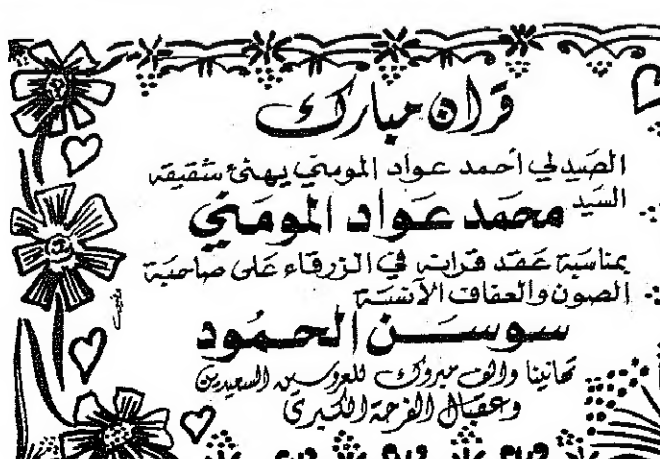 قران مبارك
الصيدلي أحمد عواد المومني يهنئ شقيقه
السيد محمد عواد المومني
بمناسبة عقد قرانه في الزرقاء على صاحبة
الصون والعفاف الآنسة
سوسن الحمود
تهانينا والف مبروك للعروسين السعيدين
وعقبال الفرحة الكبرى